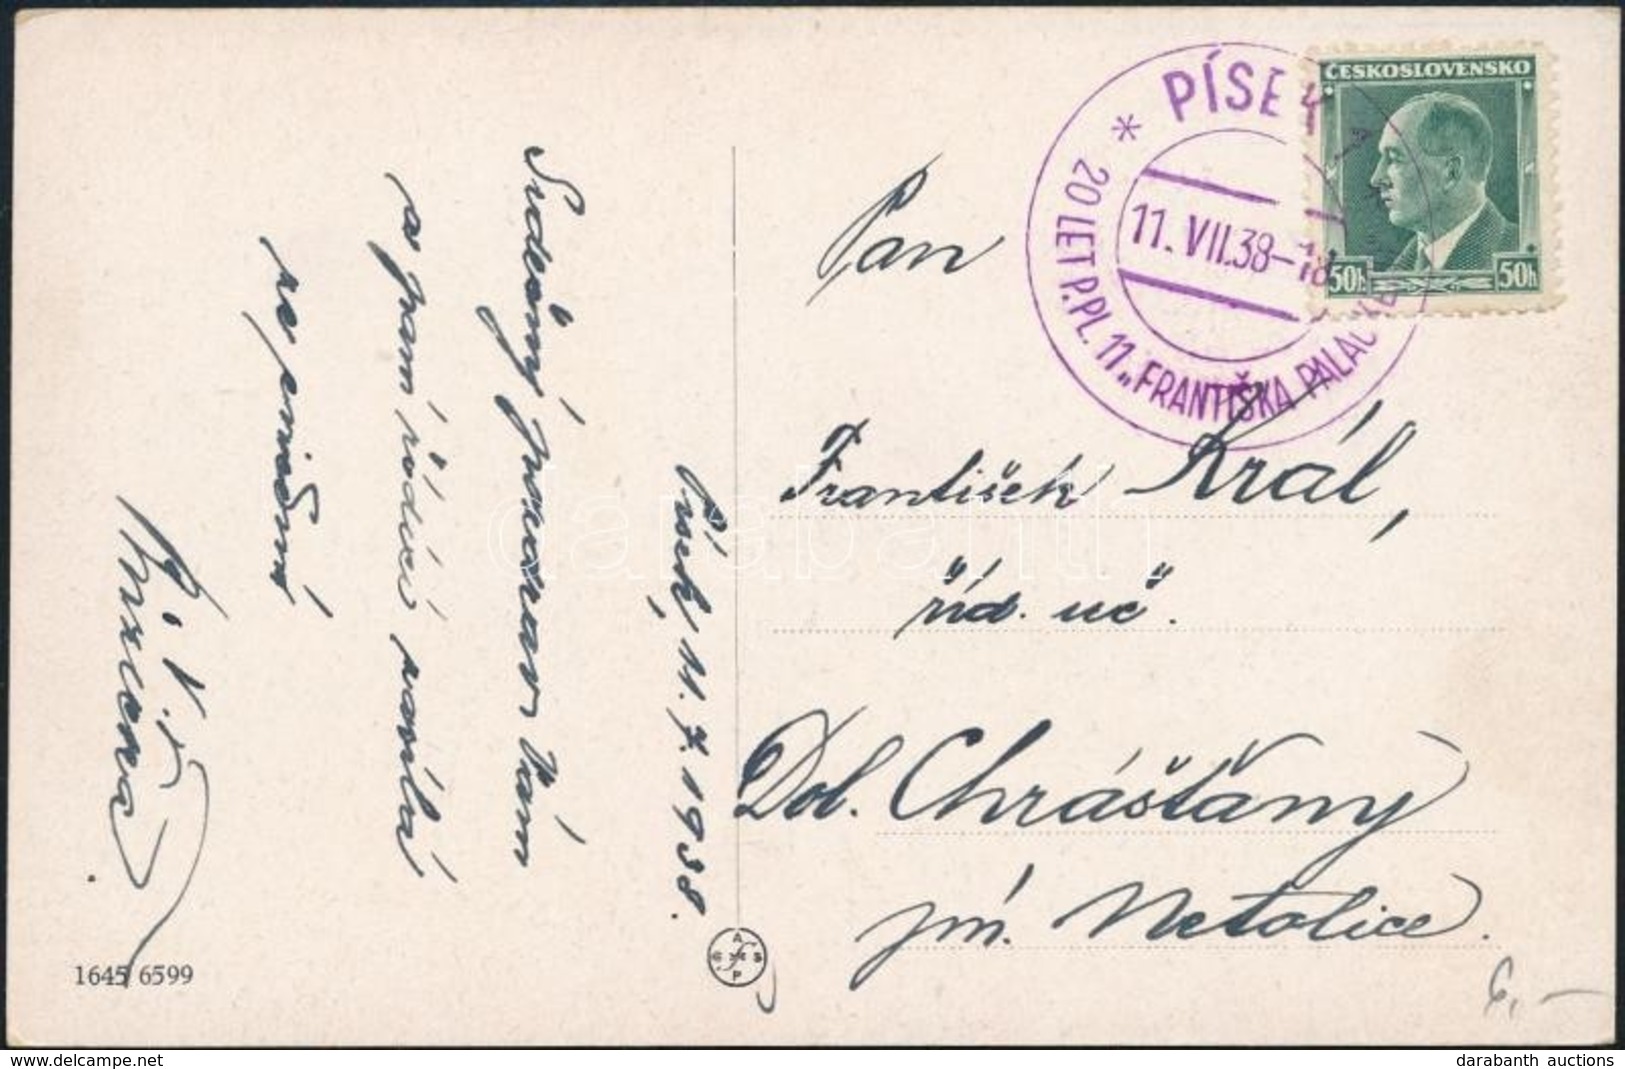 Písek, 11. 7. 1938.
Srdečný pozdrav Vám
a paní řídící
Pan
František Král,
říd. uč.
Dol. Chrášťany
p. Netolice.
PÍSEK
* 20 LET P.PL. 11 „FRANTIŠKA PALAC
11. VII.38-18
ČESKOSLOVENSKO
50h 50h
1645 6599
A
S
P
6,-
darabanth
www.delcampe.net
darabanth auctions